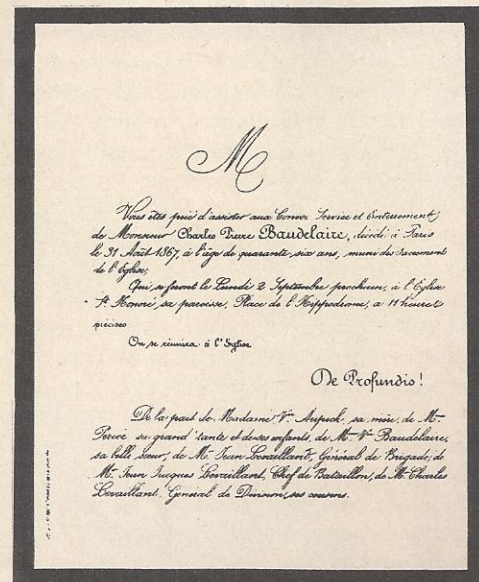 M
Vous êtes prié d'assister aux Convoi Service et Enterrement,
de Monsieur Charles Pierre Baudelaire, décédé à Paris
le 31 Août 1867, à l'âge de quarante-six ans, muni des Sacrements
de l'Église;
Qui se feront le Lundi 2 Septembre prochain, à l'Église
St Honoré, sa paroisse, Place de l'Hippodrome, à 11 heures
précises
On se réunira à l'Église
De Profundis!
De la part de Madame Vve Aupick, sa mère, de Me
sa grand'tante et de ses enfants, de Me Ve Baudelaire,
sa belle sœur, de Mr Jean Levaillant, Général de Brigade, de
Mr Jean Jacques Levaillant, Chef de Bataillon, de Mr Charles
Levaillant, Général de Division, ses cousins.